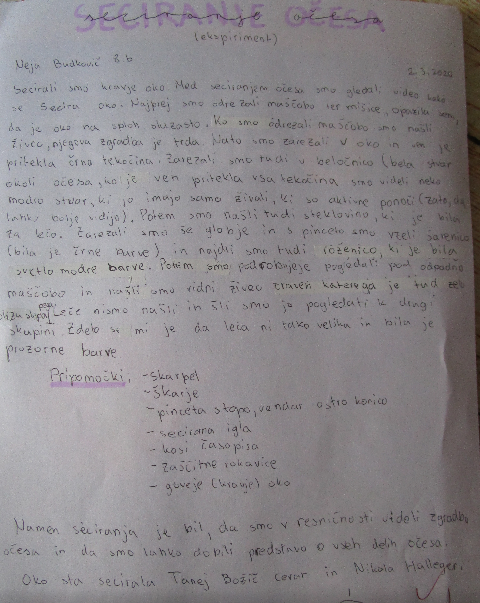 SECIRANJE OČESA
(ekspiriment)
Neja Budković 8.b
2.3.2022
Secirali smo kravje oko Med seciranjem očesa smo gledali video kako
se secira oko. Najprej smo odrezali maščobo ter mišice, opazila sem,
da je oko na sploh sluzasto. Ko smo odrezali maščobo smo našli
živec, njegova zgradba je trda. Nato smo zarezali v oko in je
pritekla črna tekočina. Zarezali smo tudi v beločnico (bela stvar
okoli očesa, ko je ven pritekla vsa tekočina smo videli neko
modro stvar, ki jo imajo samo živali, ki so aktivne ponoči (zato, da
lahko bolje vidijo). Potem smo našli tudi steklovino, ki je bila
za lečo. Zarezali smo še globje in s pinceto smo vzeli šarenico
(bila je črne barve) in najdli smo tudi roženico, ki je bila
svetlo modre barve. Potem smo podrobneje pogledali pod odpadno
maščobo in našli smo vidni živec zraven katerega je tud
blizu slepa pega Leče nismo našli in šli smo jo pogledati k drugi
skupini Zdelo se mi je da leča ni tako velika in bila je
prozorne barve
Pripomočki: - skarpel
- škarje
- pinceta s topo, vendar ostro konico
- secirna igla
- kosi časopisa
- zaščitne rokavice
- goveje (kravje) oko
Namen seciranja je bil, da smo v resničnosti videli zgradbo
očesa in da smo lahko dobili predstavo o vseh delih očesa.
Oko sta secirala Tanej Božič Cevar in Nikola Halleger.